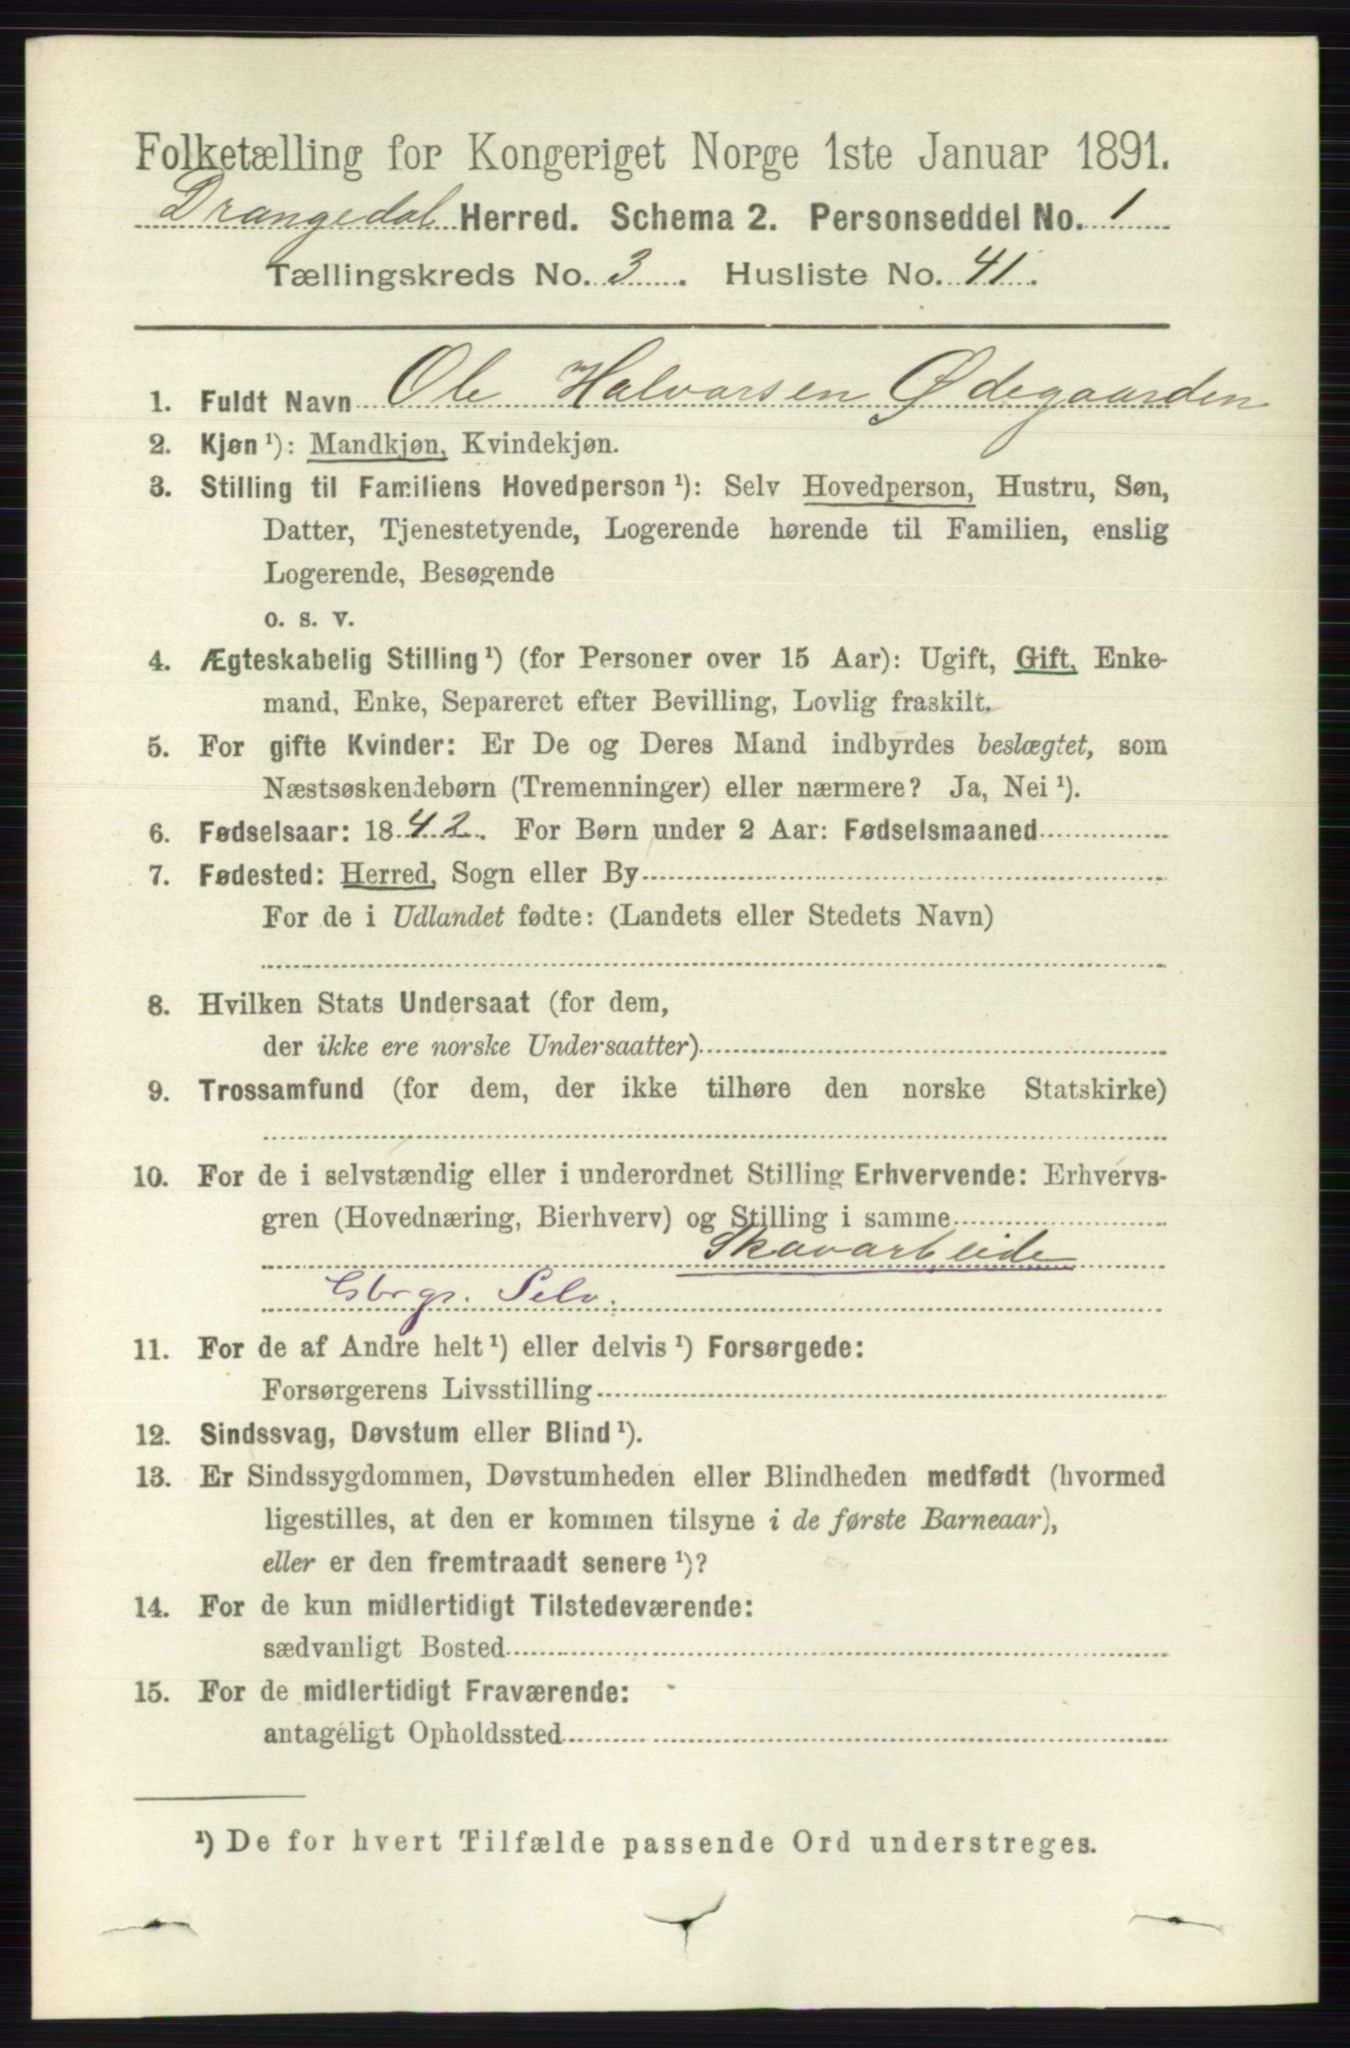 Folketælling for Kongeriget Norge 1ste Januar 1891.
Drangedal Herred. Schema 2. Personseddel No. 1
Tællingskreds No. 3. Husliste No. 41.
1. Fuldt Navn Ole Halvorsen Ødegaarden
2. Kjøn ¹): Mandkjøn, Kvindekjøn.
3. Stilling til Familiens Hovedperson ¹): Selv Hovedperson, Hustru, Søn,
Datter, Tjenestetyende, Logerende hørende til Familien, enslig
Logerende, Besøgende
o. s. v.
4. Ægteskabelig Stilling ¹) (for Personer over 15 Aar): Ugift, Gift, Enke-
mand, Enke, Separeret efter Bevilling, Lovlig fraskilt.
5. For gifte Kvinder: Er De og Deres Mand indbyrdes beslægtet, som
Næstsøskendebørn (Tremenninger) eller nærmere? Ja, Nei ¹).
6. Fødselsaar: 1842. For Børn under 2 Aar: Fødselsmaaned
7. Fødested: Herred, Sogn eller By
For de i Udlandet fødte: (Landets eller Stedets Navn)
8. Hvilken Stats Undersaat (for dem,
der ikke ere norske Undersaatter)
9. Trossamfund (for dem, der ikke tilhøre den norske Statskirke)
10. For de i selvstændig eller i underordnet Stilling Erhvervende: Erhvervs-
gren (Hovednæring, Bierhverv) og Stilling i samme
Skovarbeide
Gbrgr. Selv.
11. For de af Andre helt ¹) eller delvis ¹) Forsørgede:
Forsørgerens Livsstilling
12. Sindssvag, Døvstum eller Blind ¹).
13. Er Sindssygdommen, Døvstumheden eller Blindheden medfødt (hvormed
ligestilles, at den er kommen tilsyne i de første Barneaar),
eller er den fremtraadt senere ¹)?
14. For de kun midlertidigt Tilstedeværende:
sædvanligt Bosted
15. For de midlertidigt Fraværende:
antageligt Opholdssted
¹) De for hvert Tilfælde passende Ord understreges.